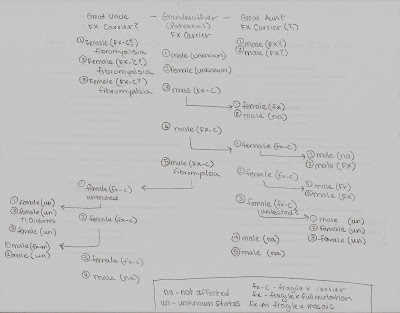 Great Uncle
FX Carrier?
① female (FX-C?)
fibromyalsia
② Female (FX-C?)
fibromyalsia
③ Female (FX-C?)
fibromyalsia
- Grandmother -
(Paternal)
FX Carrier
Great Aunt
FX Carrier (?)
① male (FX?)
② male (FX?)
① male (unknown)
② female (unknown)
③ male (FX-C)
① female (fx)
② male (na)
④ male (FX-C)
① female (FX-C)
① male (na)
② male (FX)
② female (FX-C)
① male (FX)
② male (FX)
③ female (FX-C)
untested?
① male (un)
② female (un)
③ female (un)
④ male (na)
⑤ male (na)
⑤ male (FX-C)
fibromyalsia
① female (fx-c)
untested
① female (un)
② female (un)
③ female (un)
② female (fx-c)
① male (fx-m)
② male (un)
③ female (fx-c)
④ male (na)
na - not affected
un - unknown status
fx-c - fragile x carrier
fx - fragile x full mutation
fx-m fragile x mosaic